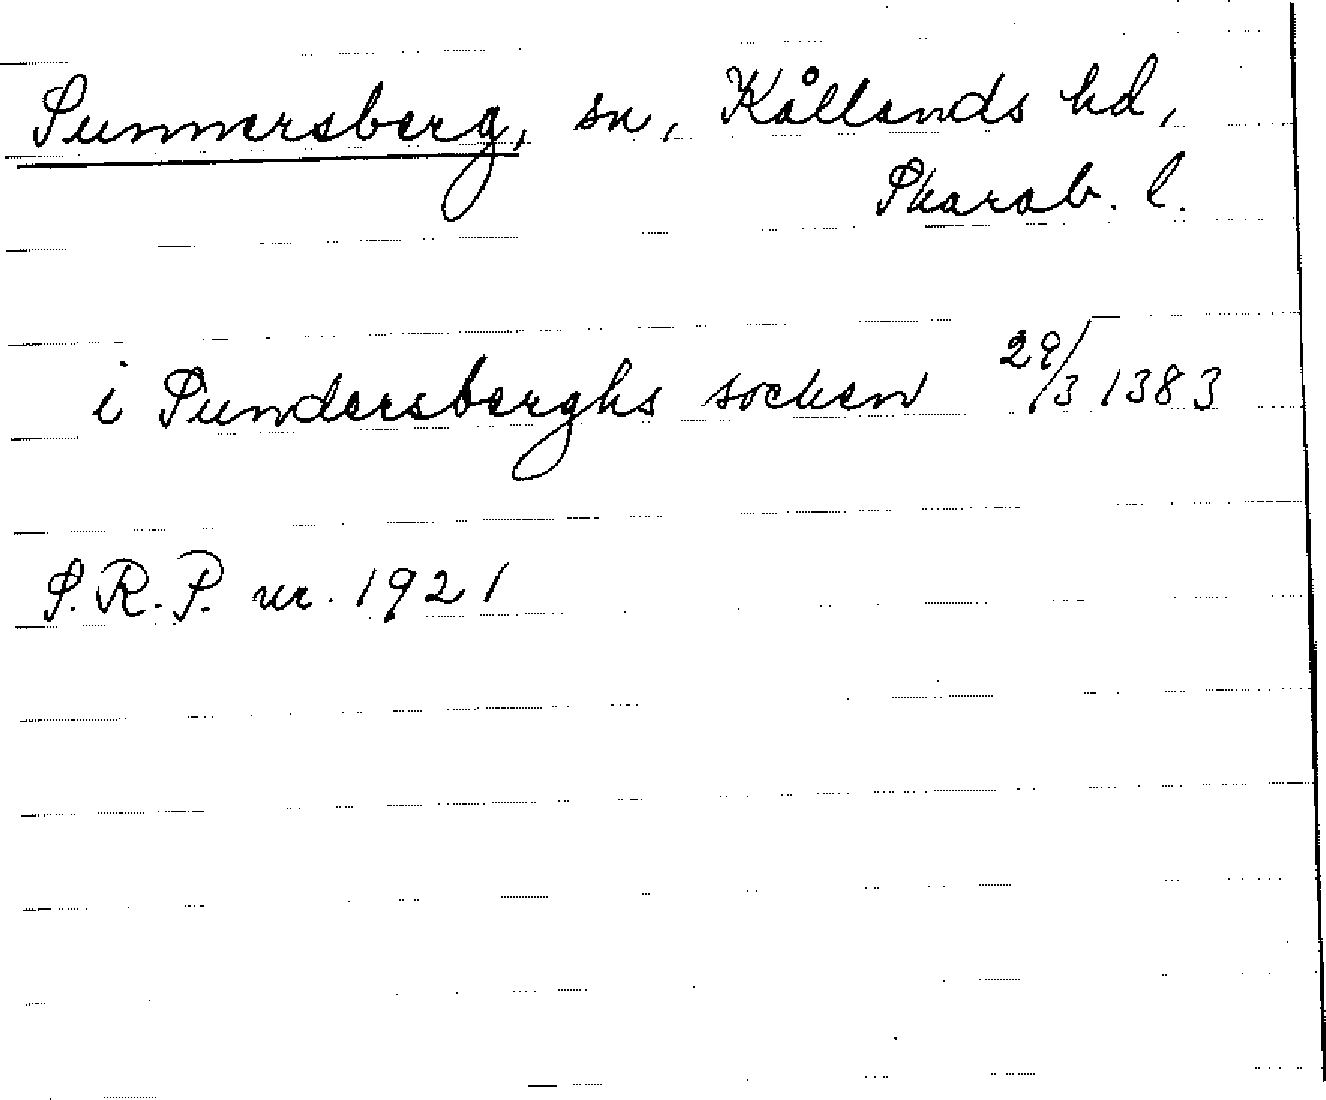 Sunnersberg, sn, Kållands hd,
Skarab. l.
i Sundersberghs socken 29/3 1383
S.R.P. nr. 1921